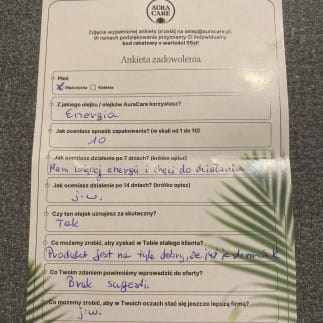 AURA
CARE
Zdjęcie wypełnionej ankiety prześlij na sklep@auracare.pl.
W ramach podziękowania przyznamy Ci indywidualny
kod rabatowy o wartości 55zł!
Ankieta zadowolenia
Płeć
Mężczyzna Kobieta
Z jakiego olejku / olejków AuraCare korzystasz?
Energia
Jak oceniasz sposób zapakowania? (w skali od 1 do 10)
10
Jak oceniasz działanie po 7 dniach? (krótko opisz)
Mam więcej energii i chęci do działania
Jak oceniasz działanie po 14 dniach? (krótko opisz)
j.w.
Czy ten olejek uznajesz za skuteczny?
Tak
Co możemy zrobić, aby zyskać w Tobie stałego klienta?
Produkt jest na tyle dobry, że już jestem
Co Twoim zdaniem powinniśmy wprowadzić do oferty?
Brak sugestii.
Co możemy zrobić, aby w Twoich oczach stać się jeszcze lepszą firmą?
j.w.